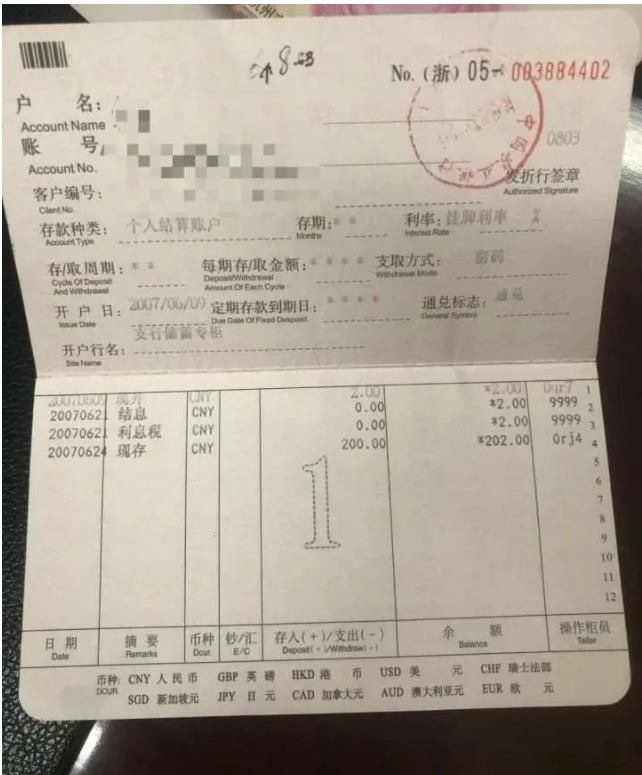 No. (浙) 05- 003884402
户 名:
Account Name
0803
账 号
Account No.
发折行签章
Authorized Signature
客户编号:
Client No.
存款种类: 个人结算账户 存期: * * 利率: 挂牌利率 %
Account Type Months Interest Rate
存/取周期: * * 每期存/取金额: * * * * 支取方式: 密码
Cycle Of Deposit And Withdrawal Deposit/Withdrawal Amount Of Each Cycle Withdrawal Mode
开 户 日: 2007/06/09 定期存款到期日: * * * * 通兑标志: 通兑
Issue Date Due Date Of Fixed Desposit General Symbol
支行储蓄专柜
开户行名:
Site Name
20070609 现开 CNY 2.00 *2.00 0qr7 1
20070621 结息 CNY 0.00 *2.00 9999 2
20070621 利息税 CNY 0.00 *2.00 9999 3
20070624 现存 CNY 200.00 *202.00 0rj4 4
5
6
7
8
9
10
11
12
1
日 期 摘 要 币种 钞/汇 存入(+)/支出(-) 余 额 操作柜员
Date Remarks Dcur. E/C Deposit(+)/Withdraw(-) Balance Teller
币种: CNY 人 民 币 GBP 英 镑 HKD 港 币 USD 美 元 CHF 瑞士法郎
DCUR. SGD 新加坡元 JPY 日 元 CAD 加拿大元 AUD 澳大利亚元 EUR 欧 元